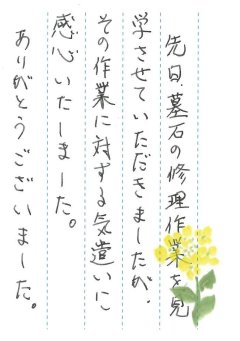 先日、墓石の修理作業を見
学させていただきましたが、
その作業に対する気遣いに
感心いたしました。
ありがとうございました。